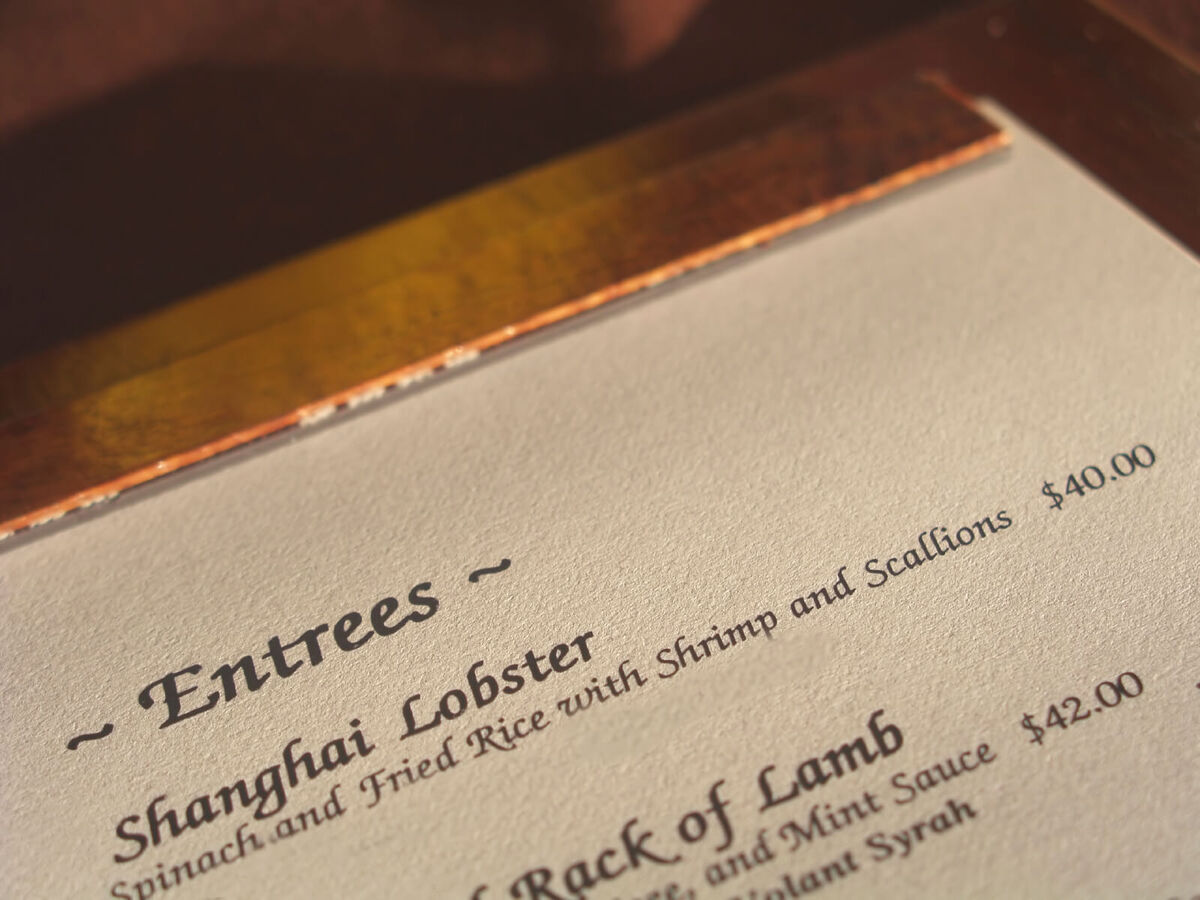 ~ Entrees ~
Shanghai Lobster
Spinach and Fried Rice with Shrimp and Scallions $40.00
Rack of Lamb
and Mint Sauce $42.00
Syrah